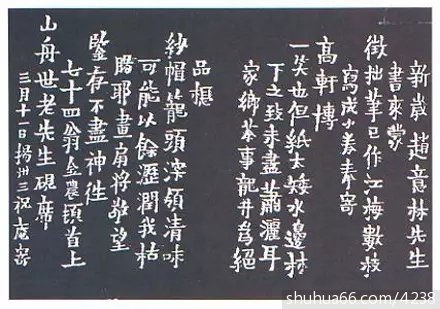 新歲趙意林先生
書來蒙
徵拙筆已作江梅數枝
寫成少差奉寄
高軒博
一笑也但紙太矮水邊林
下之致未盡蕭灑耳
家鄉茶事龍井爲絕
品想
紗帽籠頭深領清味
可能以餘瀝潤我枯
腸耶畫扇將敬望
鑒存不盡神徃
七十四翁金農頓首上
山舟世老先生硯席
三月十一日揚州三祝庵寄
shuhua66.com/4238